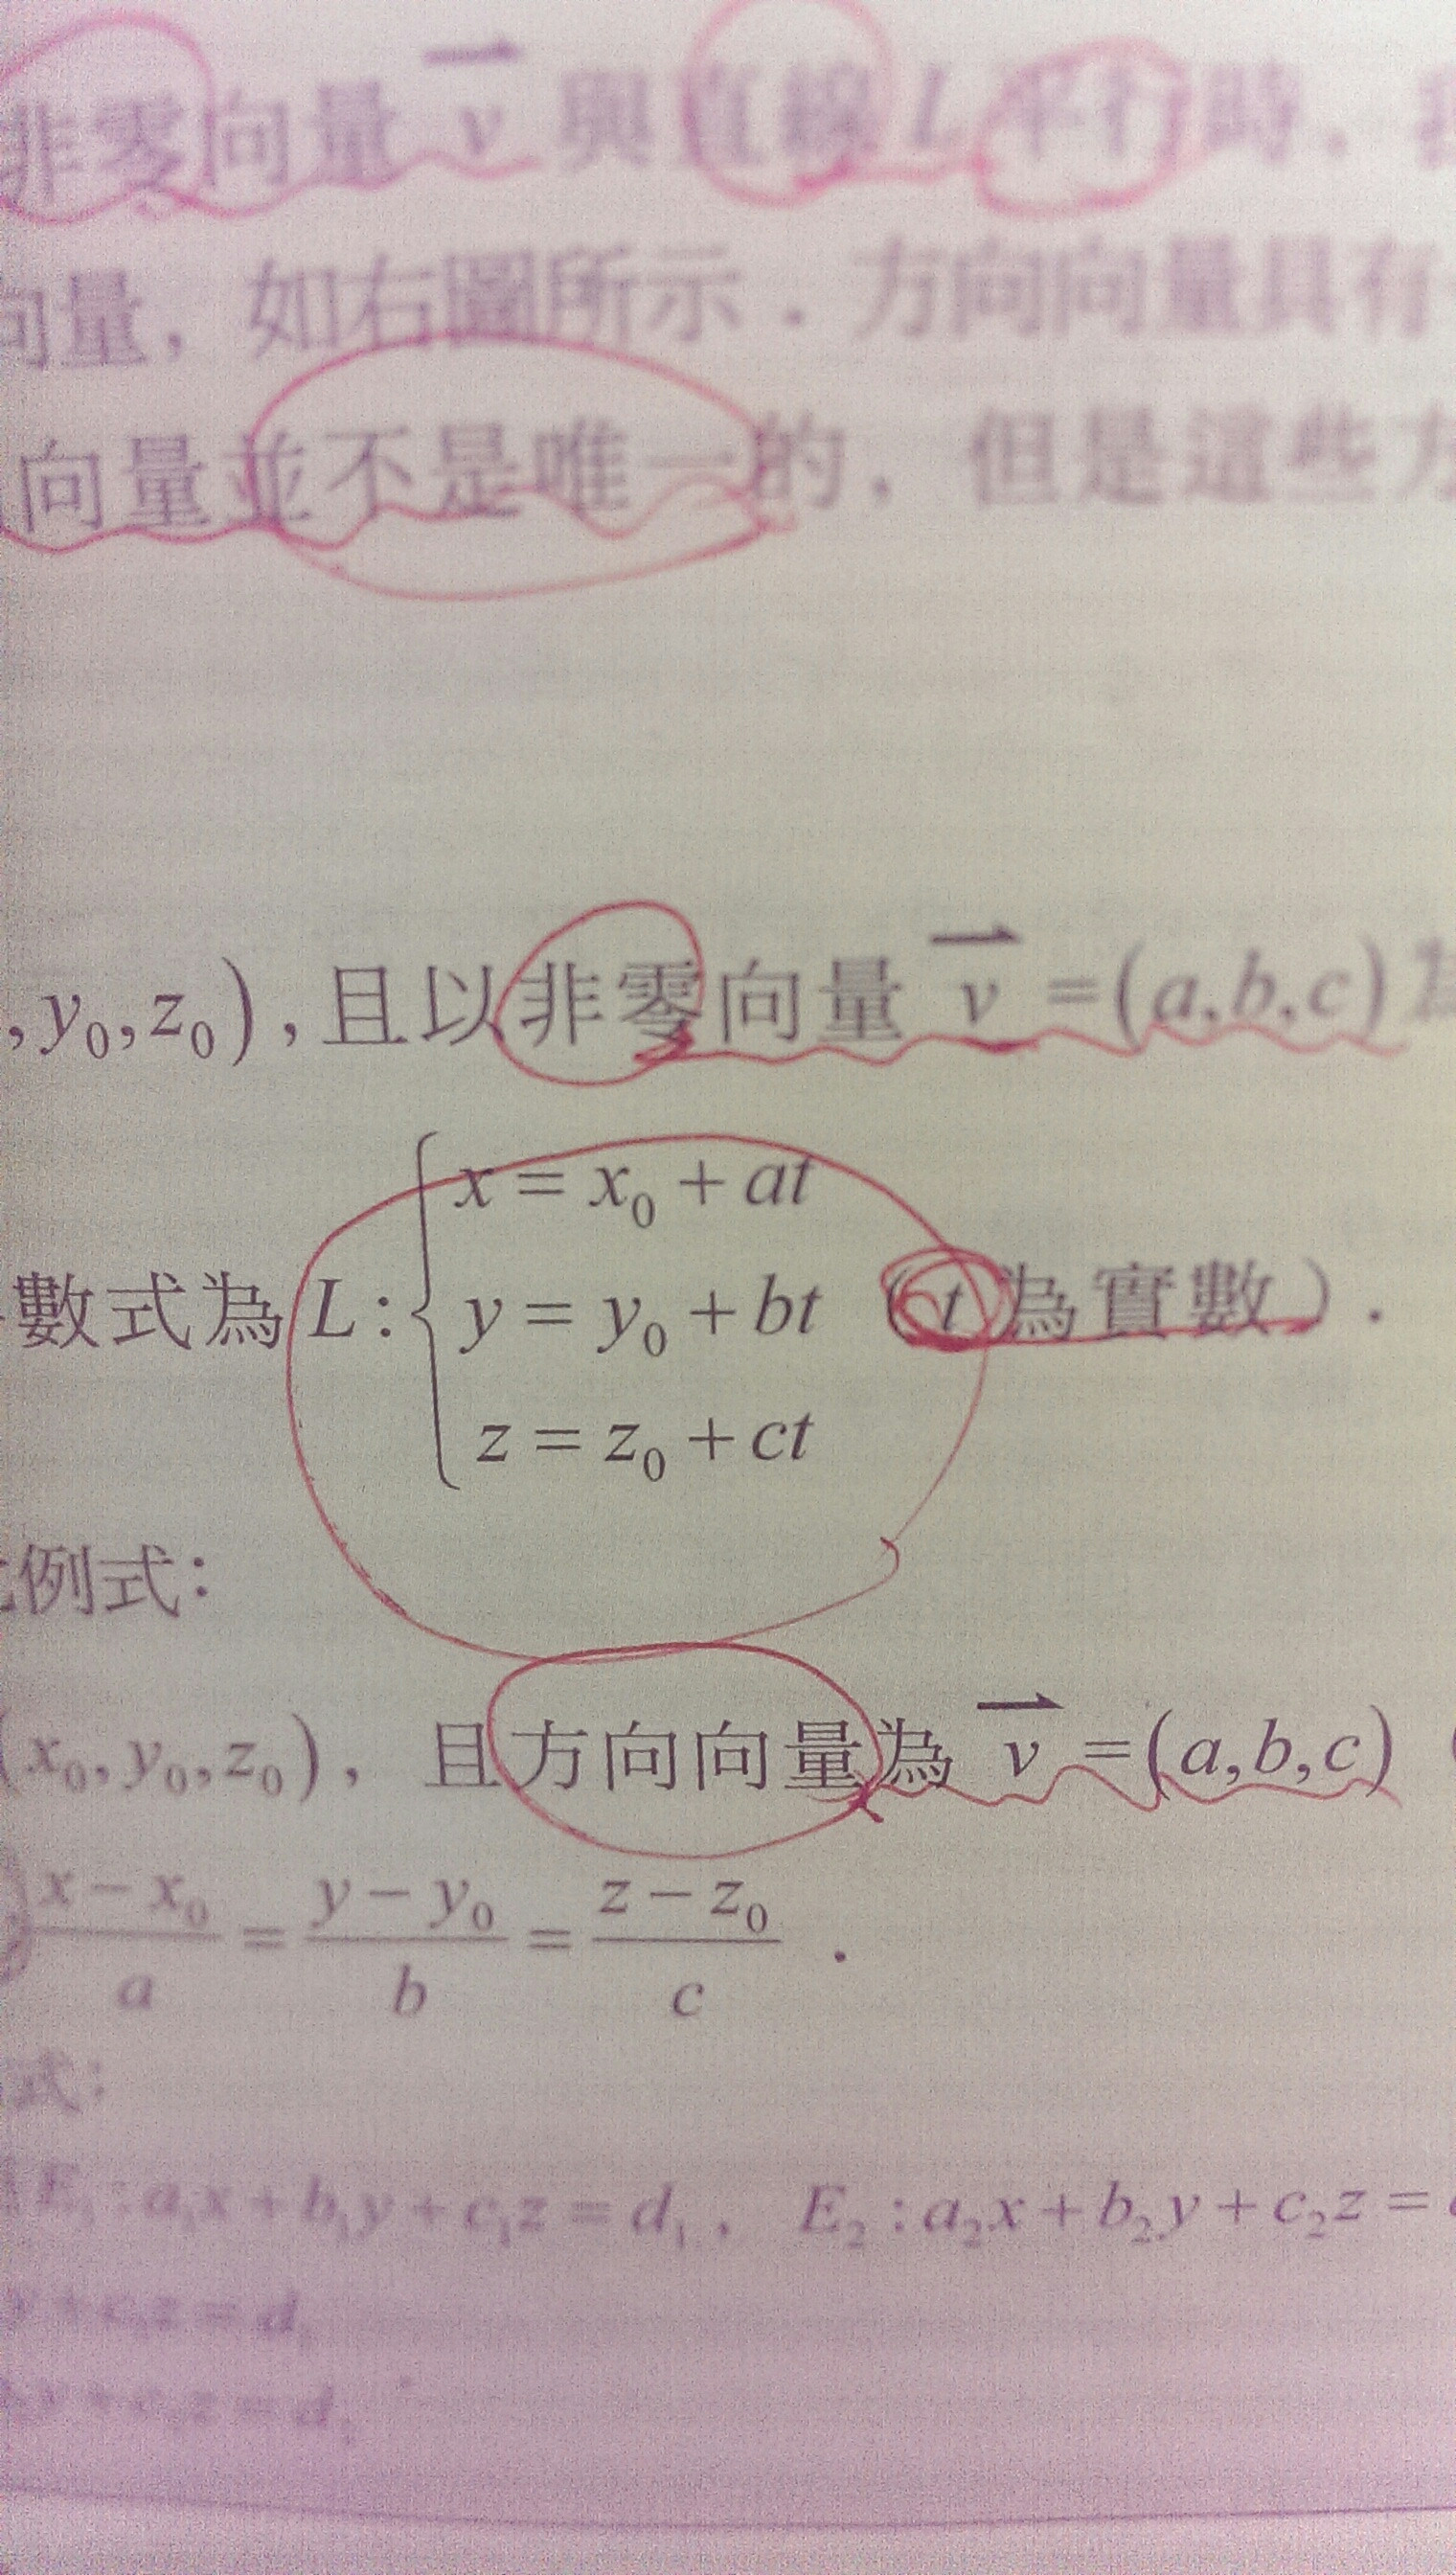 非零向量 v 與直線 L 平行時，
向量，如右圖所示．方向向量具有
向量並不是唯一的，但是這些方
, y₀, z₀)，且以非零向量 v = (a,b,c) 為
數式為 L : { x = x₀ + at
y = y₀ + bt （t 為實數）．
z = z₀ + ct
比例式：
(x₀, y₀, z₀)，且方向向量為 v = (a,b,c) (
x − x₀ / a = y − y₀ / b = z − z₀ / c ．
式：
E₁ : a₁x + b₁y + c₁z = d₁， E₂ : a₂x + b₂y + c₂z =
y + c₁z = d₁
y + c₂z = d₂ ．